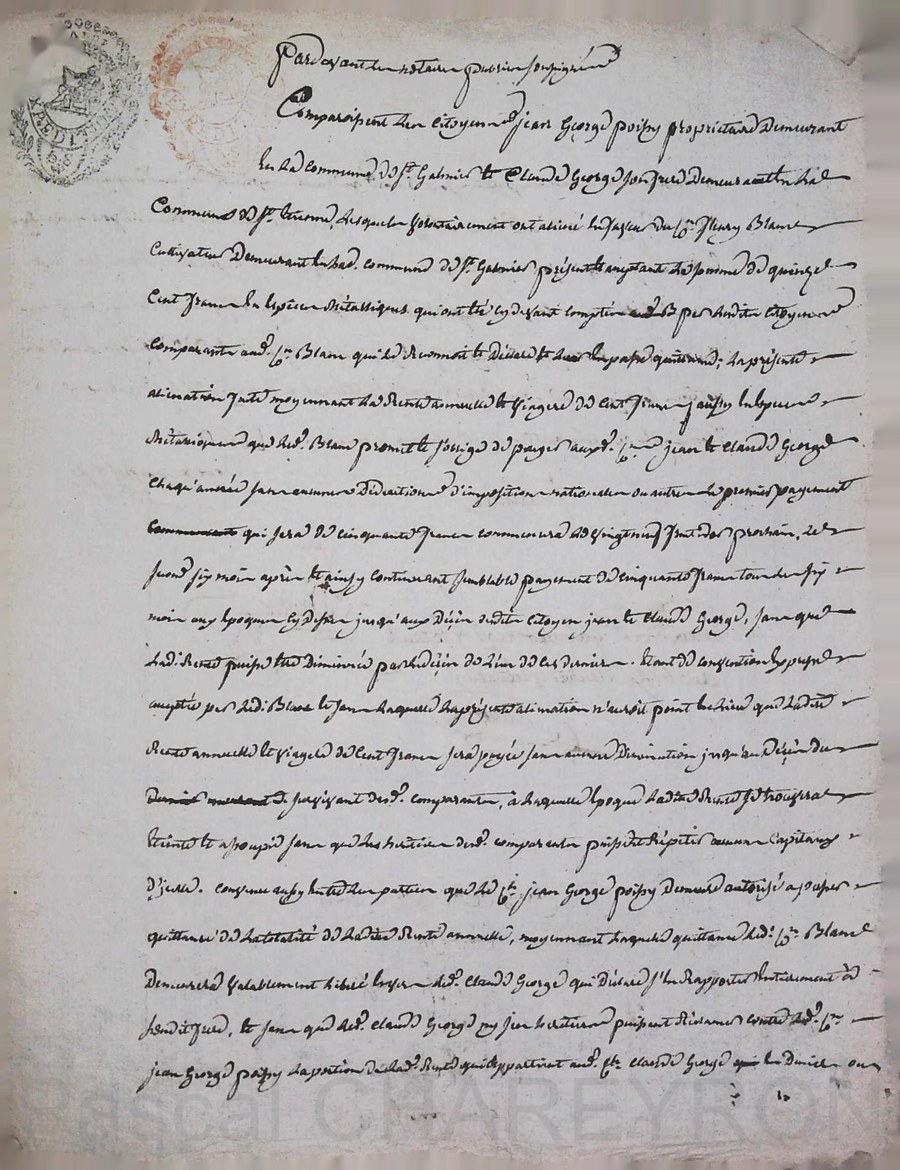 Pardevant les notaires publics soussignés
Comparoissent les citoyens jean George poissy propriétaire Demeurant
En la Commune de St. Galmier et Claude George son frere Demeurant en la
Commune de St. Etienne, lesquels volontairement ont aliéné en faveur du Cen. fleury Blanc
Cultivateur Demeurant en lad. commune de St. Galmier présent et acceptant la somme de quinze
Cent francs En Espèces métalliques qui ont été cy devant comptés par lesdits citoyens
comparants aud. Cen Blanc qui le reconnoit et Déclare et en passe quittance; la présente
alienation faite moyennant la Rente annuelle et viagere de cent francs jaussy en especes
métalliques que led. Blanc promet et s'oblige de payer auxd. Cens jean et Claude George
Chaqu'année sans aucunes Déductions d'imposition nationales ou autres le premier payement
qui sera de cinquante francs commencera le vingt neuf prochain, le
second six mois après et ainsy continuant semblable payement de cinquante francs tous les six
mois aux Epoques cy Dessus jusqu'aux Décès desdits citoyens jean et Claude George, sans que
lad. Rente puisse être Diminuée par le décès de l'un de ces derniers. Etant de convention Expresse
acceptée par led. Blanc et sans laquelle la présente alienation n'auroit point eu lieu que ladite
Rente annuelle et viagere de Cent francs sera payée sans aucune Diminution jusqu'au Décès du
survivant desd. comparants, à laquelle époque ladite Rente se trouvera
Eteinte et assoupie sans que les héritiers desd. comparants puissent répéter aucuns Capitaux
D'icelle. Convenu aussy entre les parties que le Cen. jean George poissy Demeure autorisé a passer
quittance de la totalité de ladite Rente annuelle, moyennant laquelle quittance led. Cen. Blanc
Demeurera valablement libéré envers led. Claude George qui Déclare s'en Rapporter Entierement à
sondit frere, et sans que led. Claude George ny ses heritiers puissent Réclamer contre led. Cen
jean George poissy la portion de lad. Rente qui appartient aud. Cen. Claude George le Dernier ou
Pascal CHAREYRON